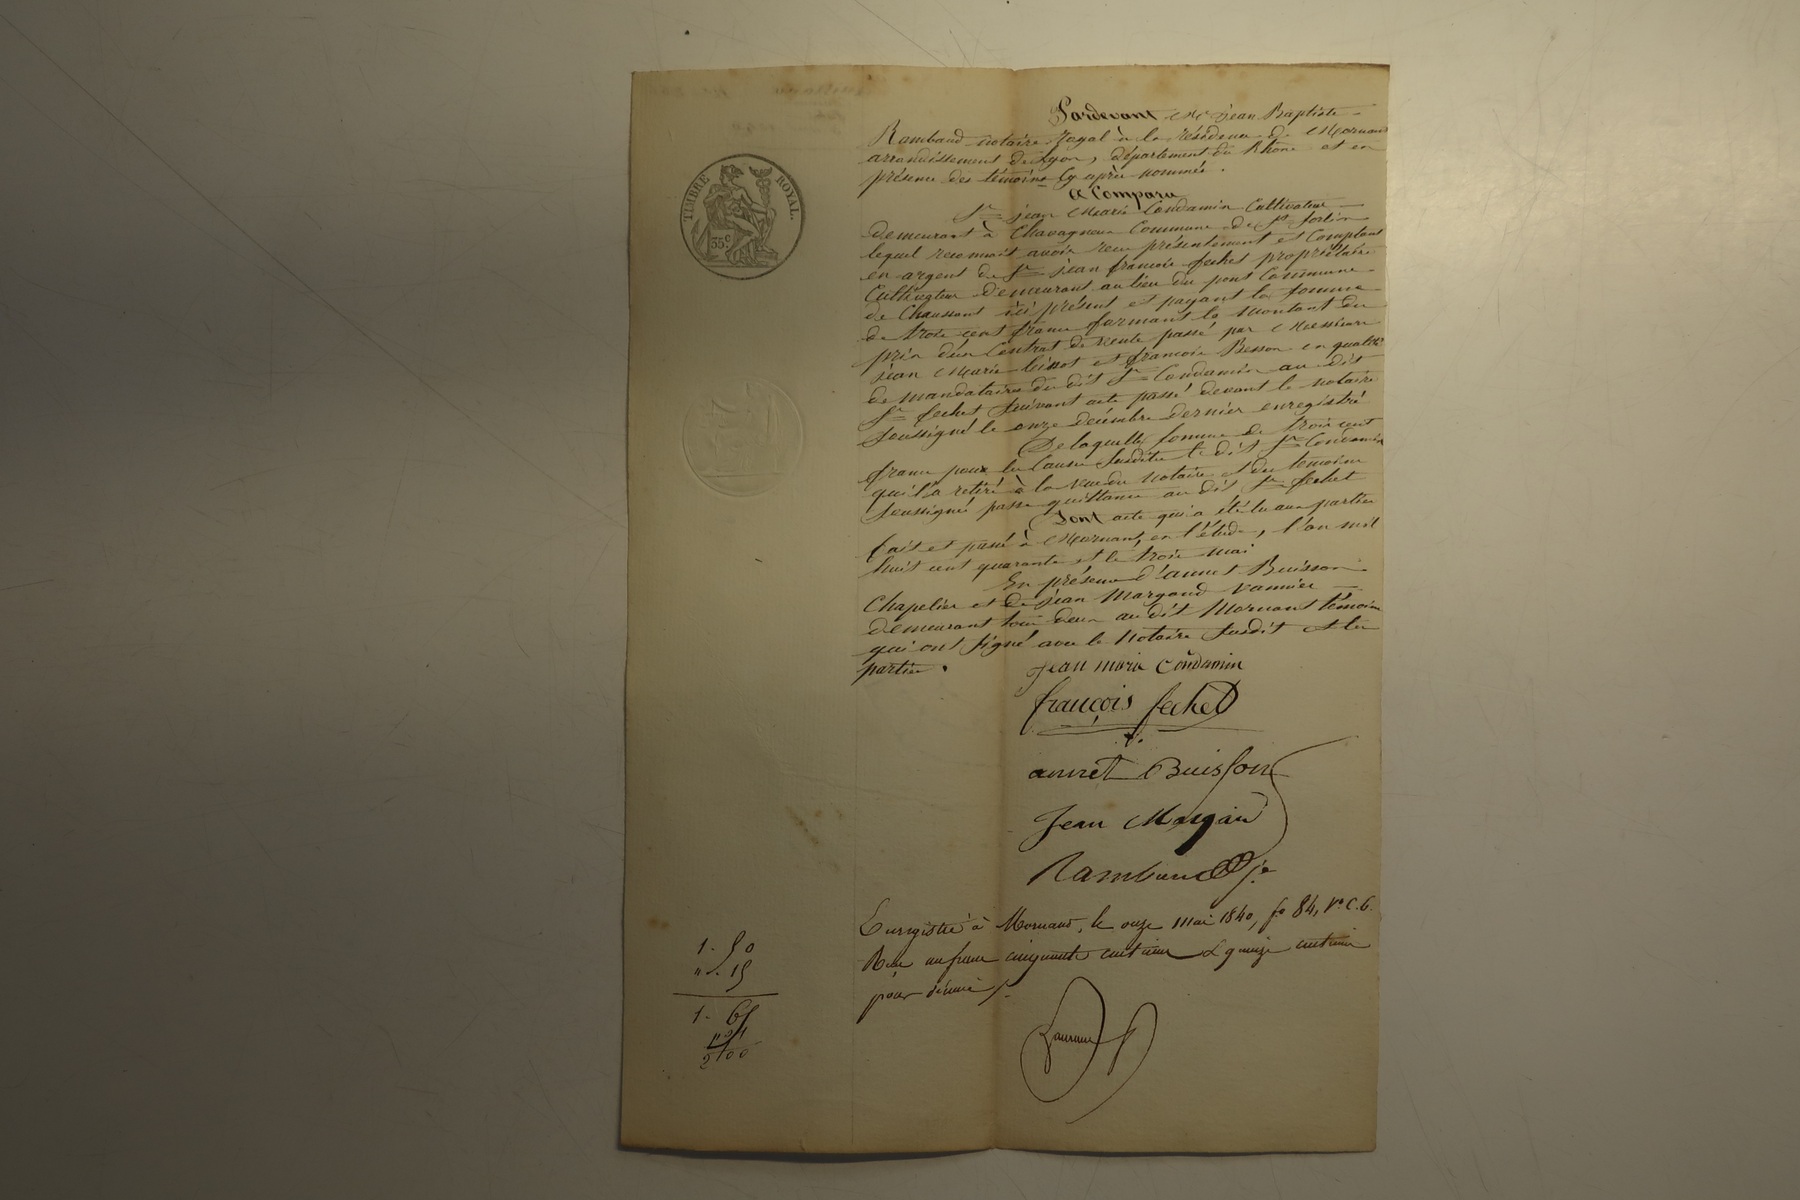 TIMBRE ROYAL.
35c
Pardevant Me jean Baptiste
Rambaud notaire Royal à la résidence de Mornant
arrondissement de Lyon, département du Rhône et en
présence des témoins cy après nommés.
a Comparu
Sr jean Marie Condamin Cultivateur
demeurant à Chavagneux Commune de St Sorlin
lequel reconnait avoir reçu présentement et Comptant
en argent de Sr jean francois fechet propriétaire
Cultivateur demeurant au lieu du pont Commune
de Chaussant ici présent et payant la somme
de trois cent francs formant le montant du
prix d'un Contrat de vente passé par Messieurs
jean Marie et francois Besson en qualité
de mandataires du dit Sr Condamin au dit
Sr fechet suivant acte passé devant le notaire
soussigné le onze décembre dernier enregistré
De laquelle somme de trois cent
francs pour les Causes susdites le dit Sr Condamin
qui l'a retiré à la vue du notaire et des témoins
soussignés passe quittance au dit Sr fechet
Dont acte qui a été lu aux parties
fait et passé à Mornant, en l'étude, l'an mil
huit cent quarante et le trois mai
En présence d'annet Buisson
Chapelier et de jean Margand vannier
demeurant tous deux au dit Mornant témoins
qui ont signé avec le Notaire susdit et les
parties.
jean marie Condamin
françois fechet
annet Buisson
Jean Margan
Rambaud
Enregistré à Mornant, le onze mai 1840, fo 84, Vo C. 6.
Reçu un franc cinquante centimes et quinze centimes
pour décime
1. 50
" . 15
1. 65
2/00